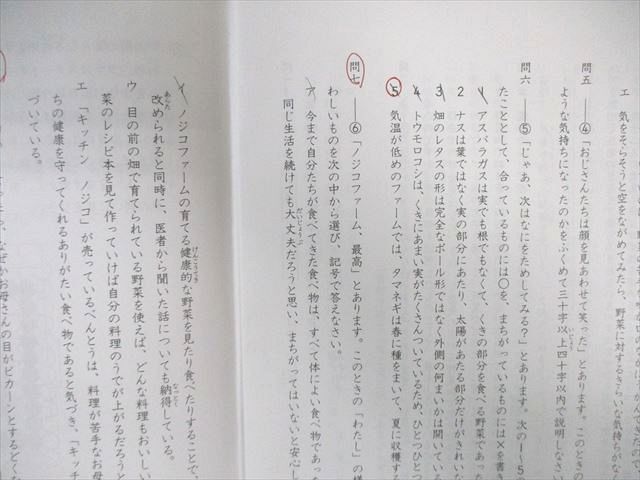 エ　気をぞらそうと空をながめてみたら、野菜に対するきらいな気持ちがな
問五　――④「おじさんたちは顔を見あわせて笑った」とあります。このときの
ような気持ちになったのかをふくめて三十字以上四十字以内で説明しなさい
問六　――⑤「じゃあ、次はなにをためしてみる？」とあります。次の1～5
たこととして、合っているものには〇を、まちがっているものには×を書き
1　アスパラガスは実でも根でもなくて、くきの部分を食べる野菜であった
2　ナスは葉ではなく実の部分にあたり、太陽があたる部分だけがきれいな
3　畑のレタスの形は完全なボール形ではなく外側の何まいかは開いている
4　トウモロコシは、くきにあまい実がたくさんついているため、ひとつひとつ
5　気温が低めのファームでは、タマネギは春に種をまいて、夏に収穫する
問七　――⑥「ノジコファーム、最高」とあります。このときの「わたし」の様
わしいものを次の中から選び、記号で答えなさい。
ア　今まで自分たちが食べてきた食べ物は、すべて体によい食べ物であった
同じ生活を続けても大丈夫だろうと思い、まちがってはいないと安心し
イ　ノジコファームの育てる健康的な野菜を見たり食べたりすることで、
改められると同時に、医者から聞いた話についても納得している。
ウ　目の前の畑で育てられている野菜を使えば、どんな料理もおいしい
菜のレシピ本を見て作っていけば自分の料理のうでが上がるだろうと
エ　「キッチン　ノジコ」が売っているべんとうは、料理が苦手なお母
ちの健康を守ってくれるありがたい食べ物であると気づき、「キッチ
づいている。
なぜかお母さんの目がピカーンとするどくな